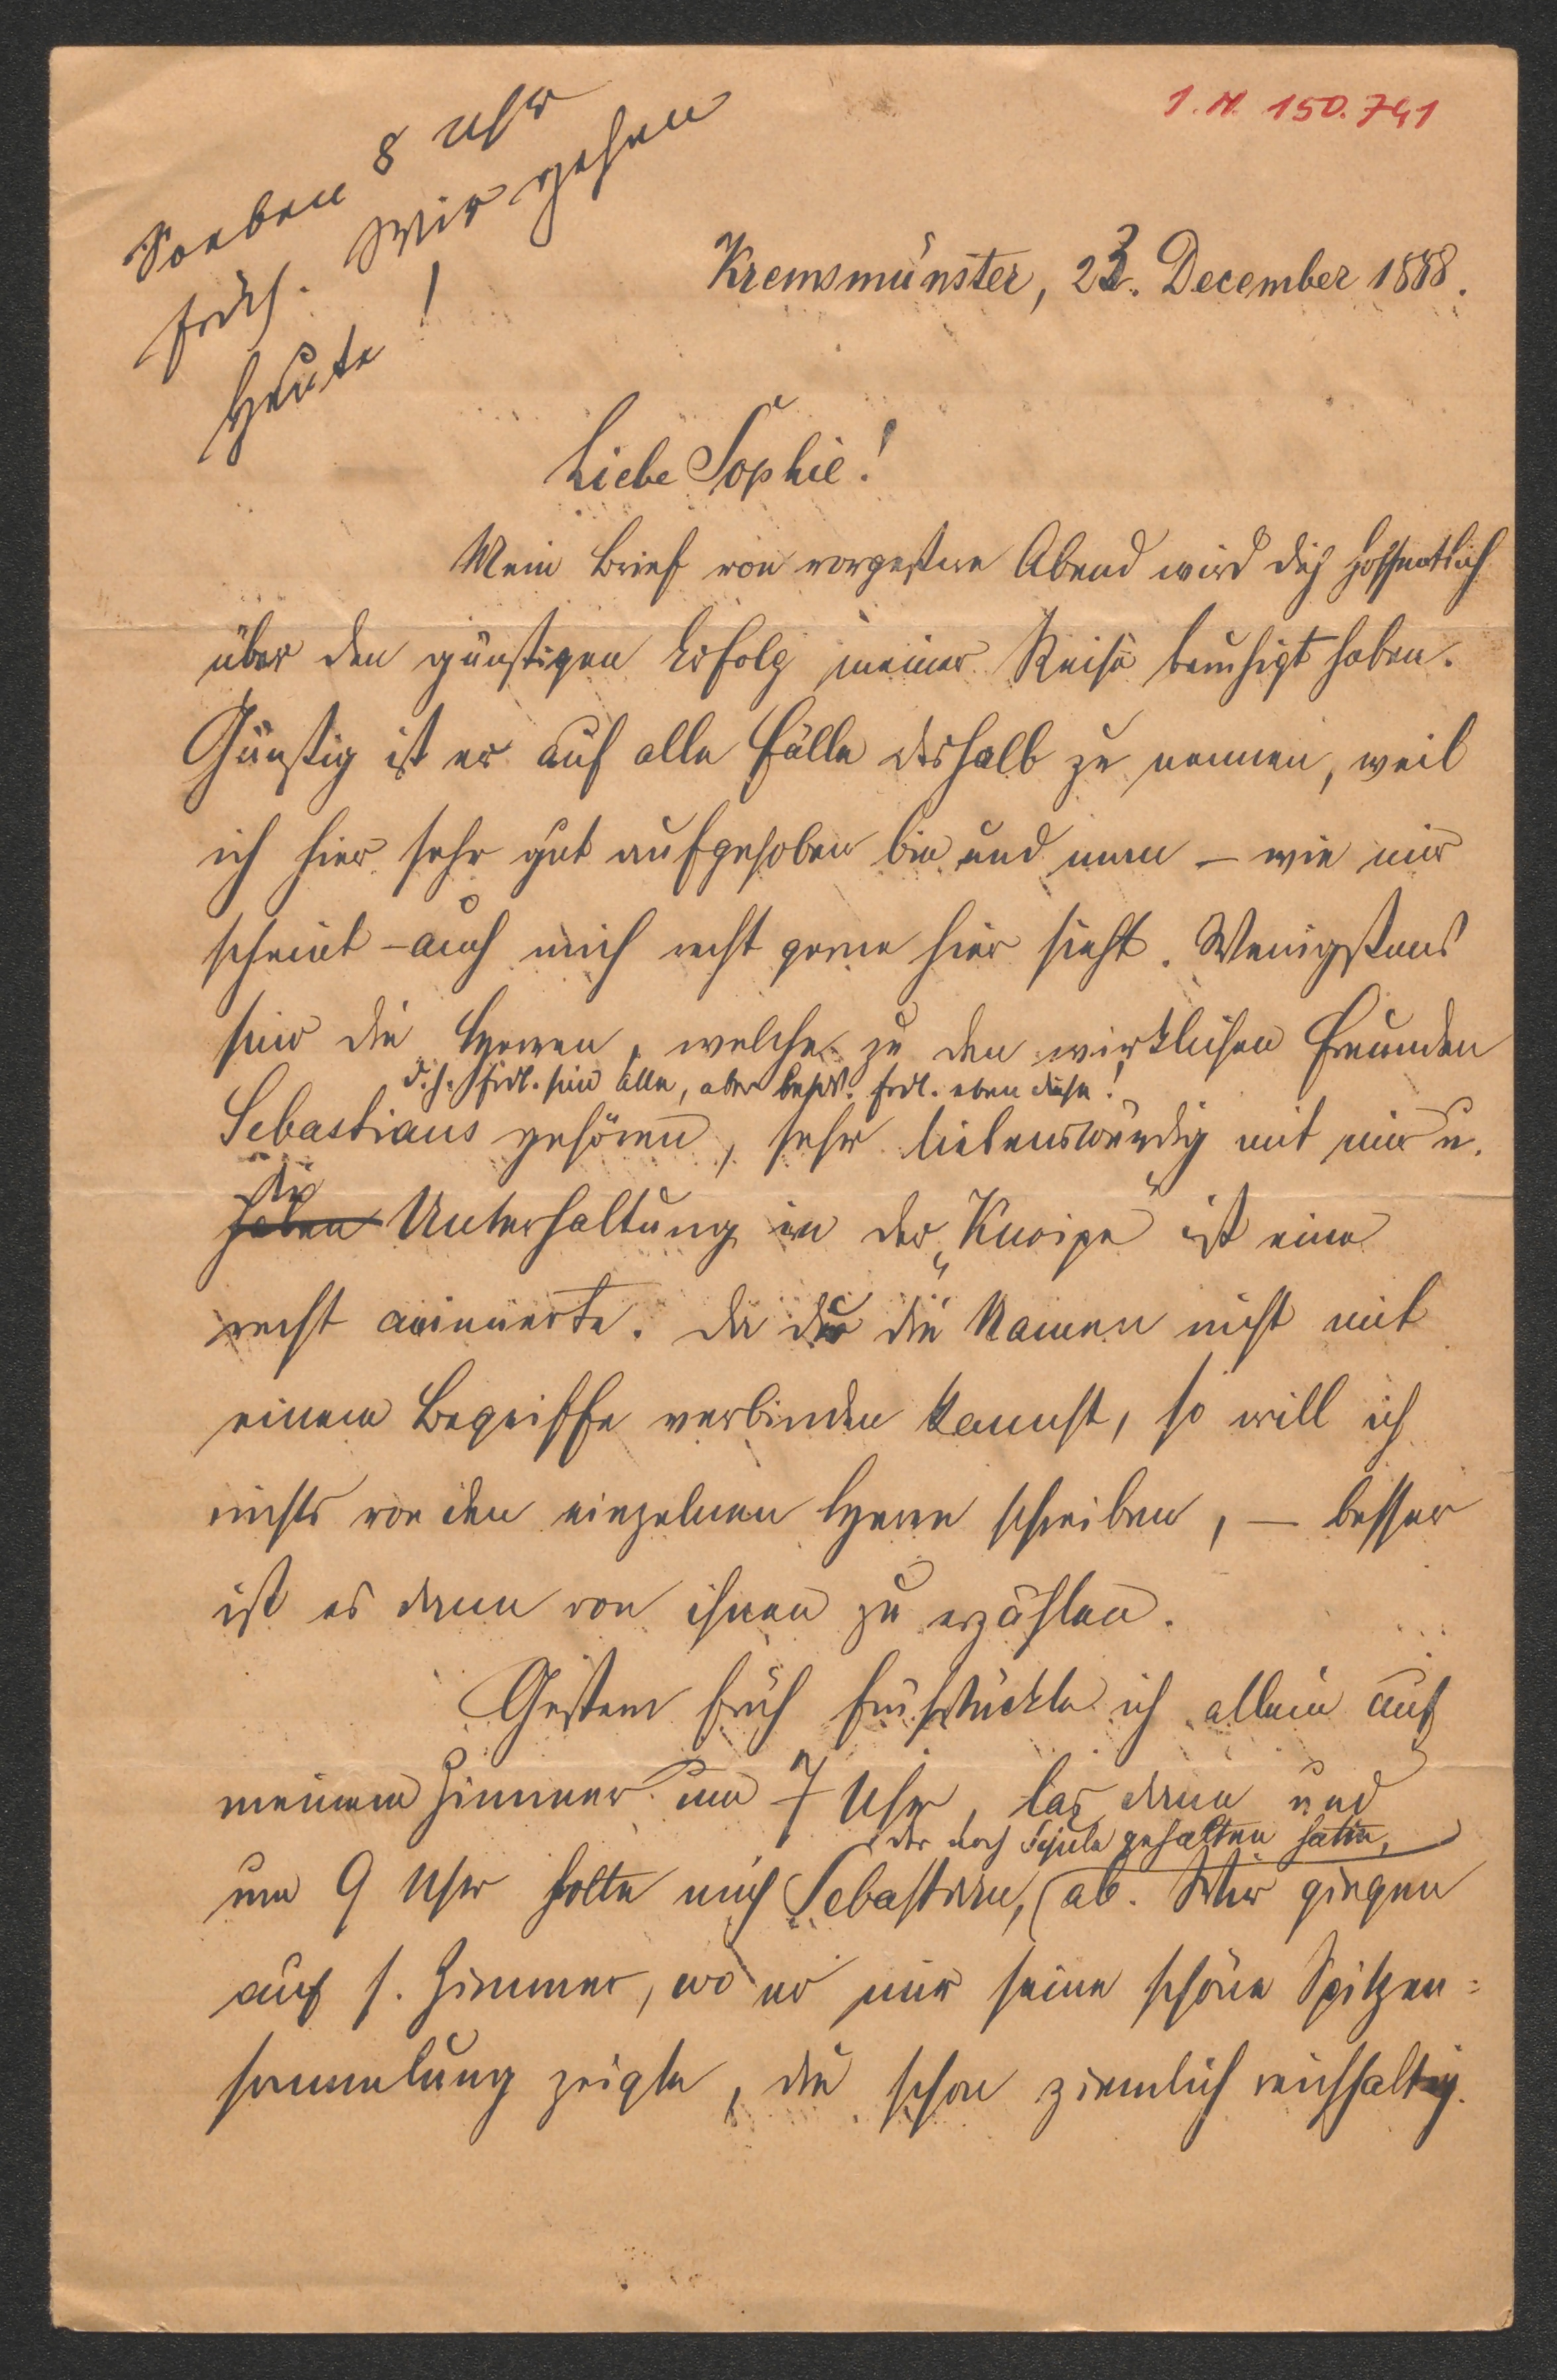 I. N. 150.741
Soeben 8 Uhr
früh. Wir gehen
heute!
Kremsmünster, 23. December 1888.
Liebe Sophie!
Mein Brief von vorgestern Abend wird dich hoffentlich
über den günstigen Erfolg meiner Reise beruhigt haben.
Günstig ist er auf alle Fälle deshalb zu nennen, weil
ich hier sehr gut aufgehoben bin und man – wie mir
scheint – auch mich recht gerne hier sieht. Wenigstens
sind die Herren, welche zu den wirklichen Freunden
d. h. frdl. sind alle, aber besds. frdl. eben diese!
Sebastians gehören, sehr liebenswürdig mit mir u.
die
haben Unterhaltung in der „Kneipe“ ist eine
recht animierte. Da du die Namen nicht mit
einem Begriffe verbinden kannst, so will ich
nichts von den einzelnen Herren schreiben, – besser
ist es dann von ihnen zu erzählen.
Gestern früh frühstückte ich allein auf
meinem Zimmer um 7 Uhr, las dann und
der noch Schule gehalten hatte,
um 9 Uhr holte mich Sebastian, ab. Wir gingen
auf s. Zimmer, wo er mir seine schöne Spitzen=
sammlung zeigte, die schon ziemlich reichhaltig.